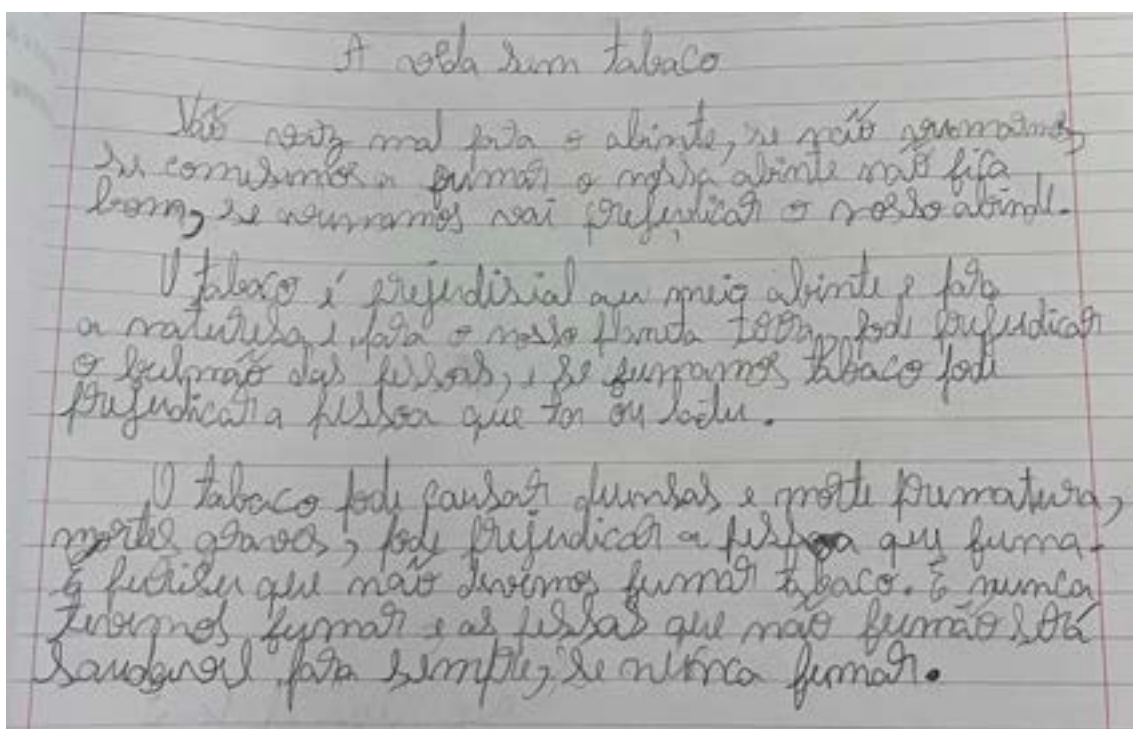 A vida sem tabaco
Vão veiz mal para o abinte, se não vumarmos,
se comesemos a fumar o nossa abinte não fica
bom, se vumamos vai prejudicar o nosso abinte.
O tabaco é prejudisial au meio abinte e para
a naturesa e, para o nosso planeta toda, pode prejudicar
o pulmão das pessoas, e se fumamos tabaco pode
prejudicar a pessoa que ta ou ladu.
O tabaco pode causar duensas e morte prematura,
mortes graves, pode prejudicar a pessoa que fuma.
É que não devemos fumar tabaco. E nunca
tevemos fumar e as pessas que não fumão será
saudavel para sempre, se nunca fumar.